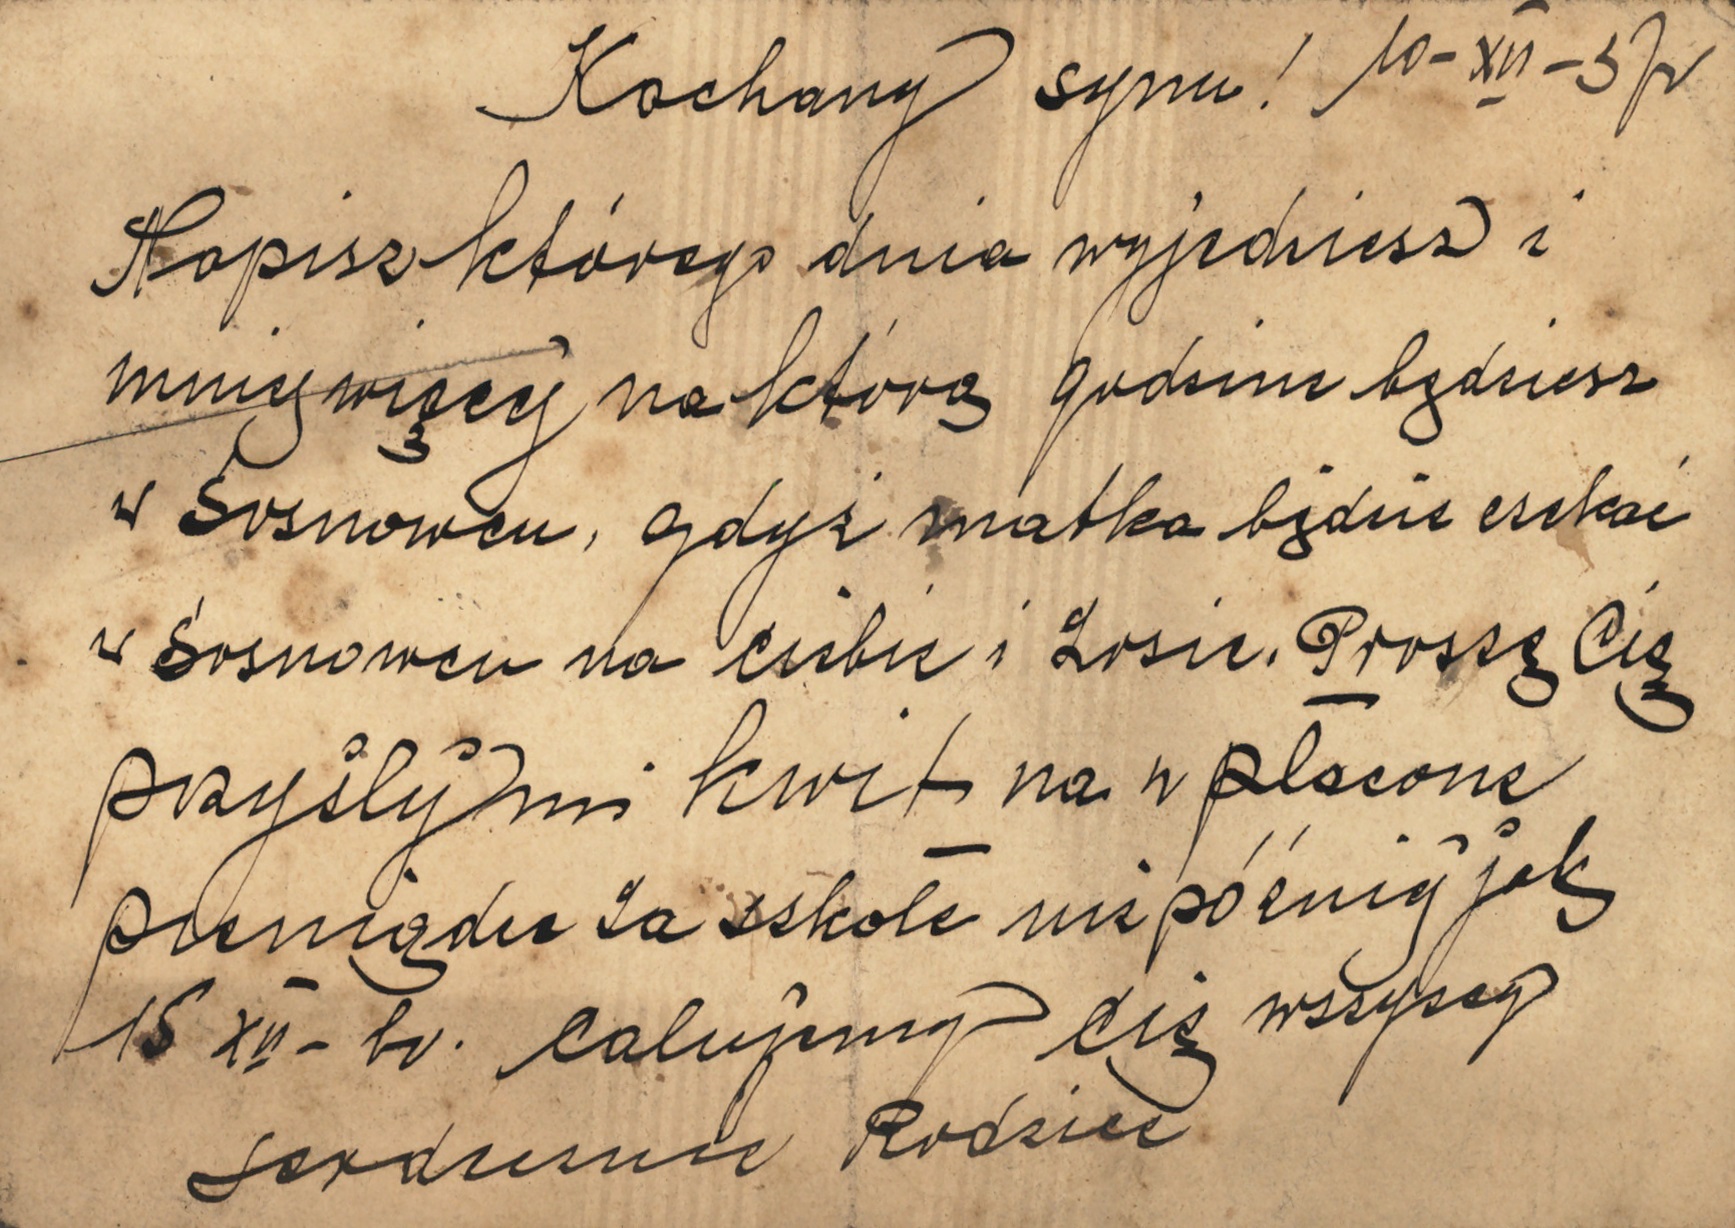 Kochany synu! 10-XII-37r
Napisz którego dnia wyjedziesz i
mniejwięcej na którą godzine będziesz
w Sosnowcu, gdyż matka będzie czekać
w Sosnowcu na ciebie i Zosie. Proszę Cię
przyślij mi kwit na wplacone
pieniądze za szkołe nie późniéj jak
15 XII - br. calujemy cię wszyscy
serdecznie Rodzice